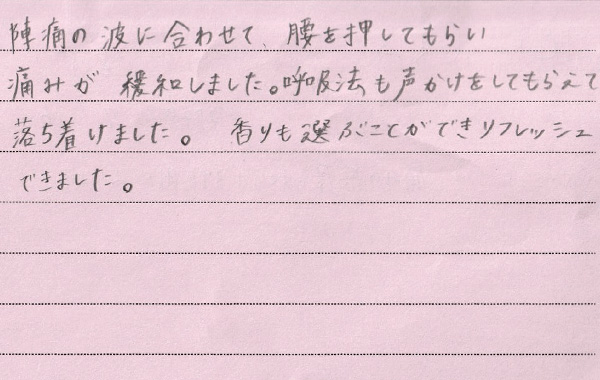 陣痛の波に合わせて、腰を押してもらい
痛みが 緩和しました。呼吸法も声かけをしてもらえて
落ち着けました。 香りも選ぶことができリフレッシュ
できました。